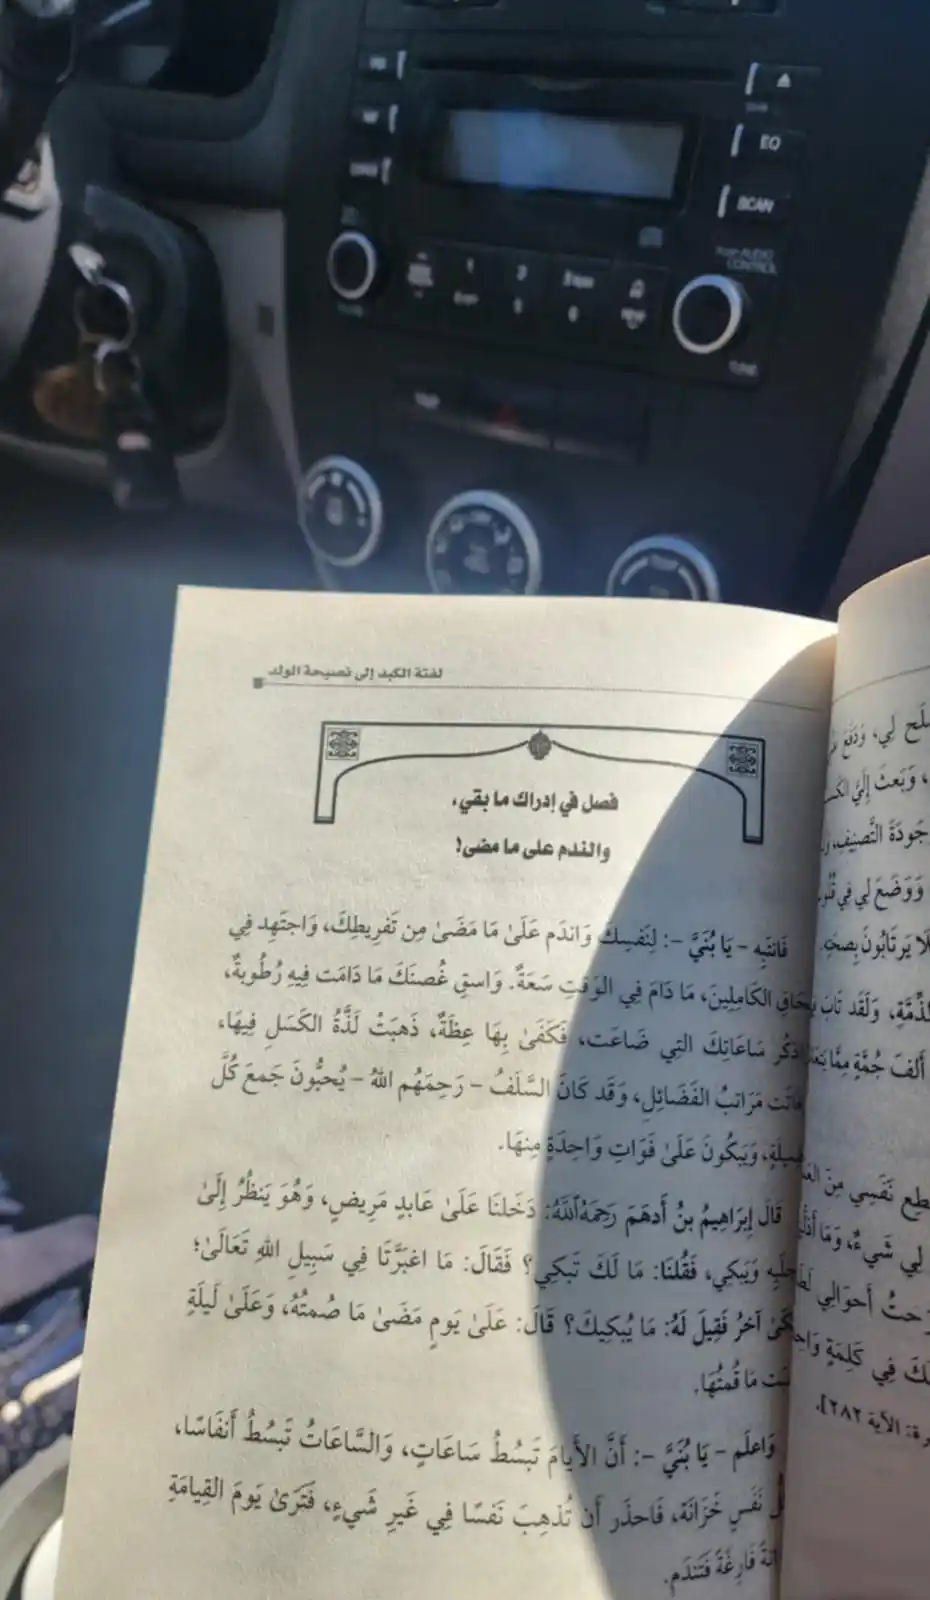 EQ
SCAN
AUDIO
CONTROL
TUNE
1
2
لفتة الكبد إلى نصيحة الولد
فصل في إدراك ما بقي،
والندم على ما مضى!
فَانتَبِه - يَا بُنَيَّ -: لِنَفسِكَ وَاندَم عَلَىٰ مَا مَضَىٰ مِن تَفرِيطِكَ، وَاجتَهِد فِي
الكَامِلِينَ، مَا دَامَ فِي الوَقتِ سَعَةٌ. وَاسقِ غُصنَكَ مَا دَامَت فِيهِ رُطُوبةٌ،
سَاعَاتِكَ التِي ضَاعَت، فَكَفَىٰ بِهَا عِظَةٌ، ذَهَبَتْ لَذَّةُ الكَسَلِ فِيهَا،
مَرَاتبُ الفَضَائِلِ، وَقَد كَانَ السَّلَفُ - رَحِمَهُم اللهُ - يُحبُّونَ جَمعَ كُلِّ
وَيَبكُونَ عَلَىٰ فَوَاتِ وَاحِدَةٍ مِنهَا.
قَالَ إِبرَاهِيمُ بنُ أَدهَمَ رَحِمَهُ ٱللَّهُ: دَخَلنَا عَلَىٰ عَابدٍ مَرِيضٍ، وَهُوَ يَنظُرُ إِلَىٰ
وَيَبكِي، فَقُلنَا: مَا لَكَ تَبكِي؟ فَقَالَ: مَا اغبَرَّتَا فِي سَبِيلِ اللهِ تَعَالَىٰ؛
آخرُ فَقِيلَ لَهُ: مَا يُبكِيكَ؟ قَالَ: عَلَىٰ يَومٍ مَضَىٰ مَا صُمتُهُ، وَعَلَىٰ لَيلَةٍ
مَا قُمتُهَا.
وَاعلَم - يَا بُنَيَّ -: أَنَّ الأَيامَ تَبسُطُ سَاعَاتٍ، وَالسَّاعَاتُ تَبسُطُ أَنفَاسًا،
نَفَسٍ خَزَانَة، فَاحذَر أَن تُذهِبَ نَفسًا فِي غَيرِ شَيءٍ، فَتَرَىٰ يَومَ القِيامَةِ
فَارِغَةً فَتَندَم.
لِي، وَدَفَعَ
وَبَعثَ إِلَيَّ
جَودَةَ التَّصنِيفِ،
وَوَضَعَ لِي فِي
يَرتَابُونَ بِصحَّتِهِ.
وَلَقَد تَابَ
أَلفَ جُمَّةٍ مِمَّا
نَفَسِي مِنَ
لِي شَيءٌ، وَمَا
أَحوَالِي
فِي كَلِمَةٍ
الآية ٢٨٢].